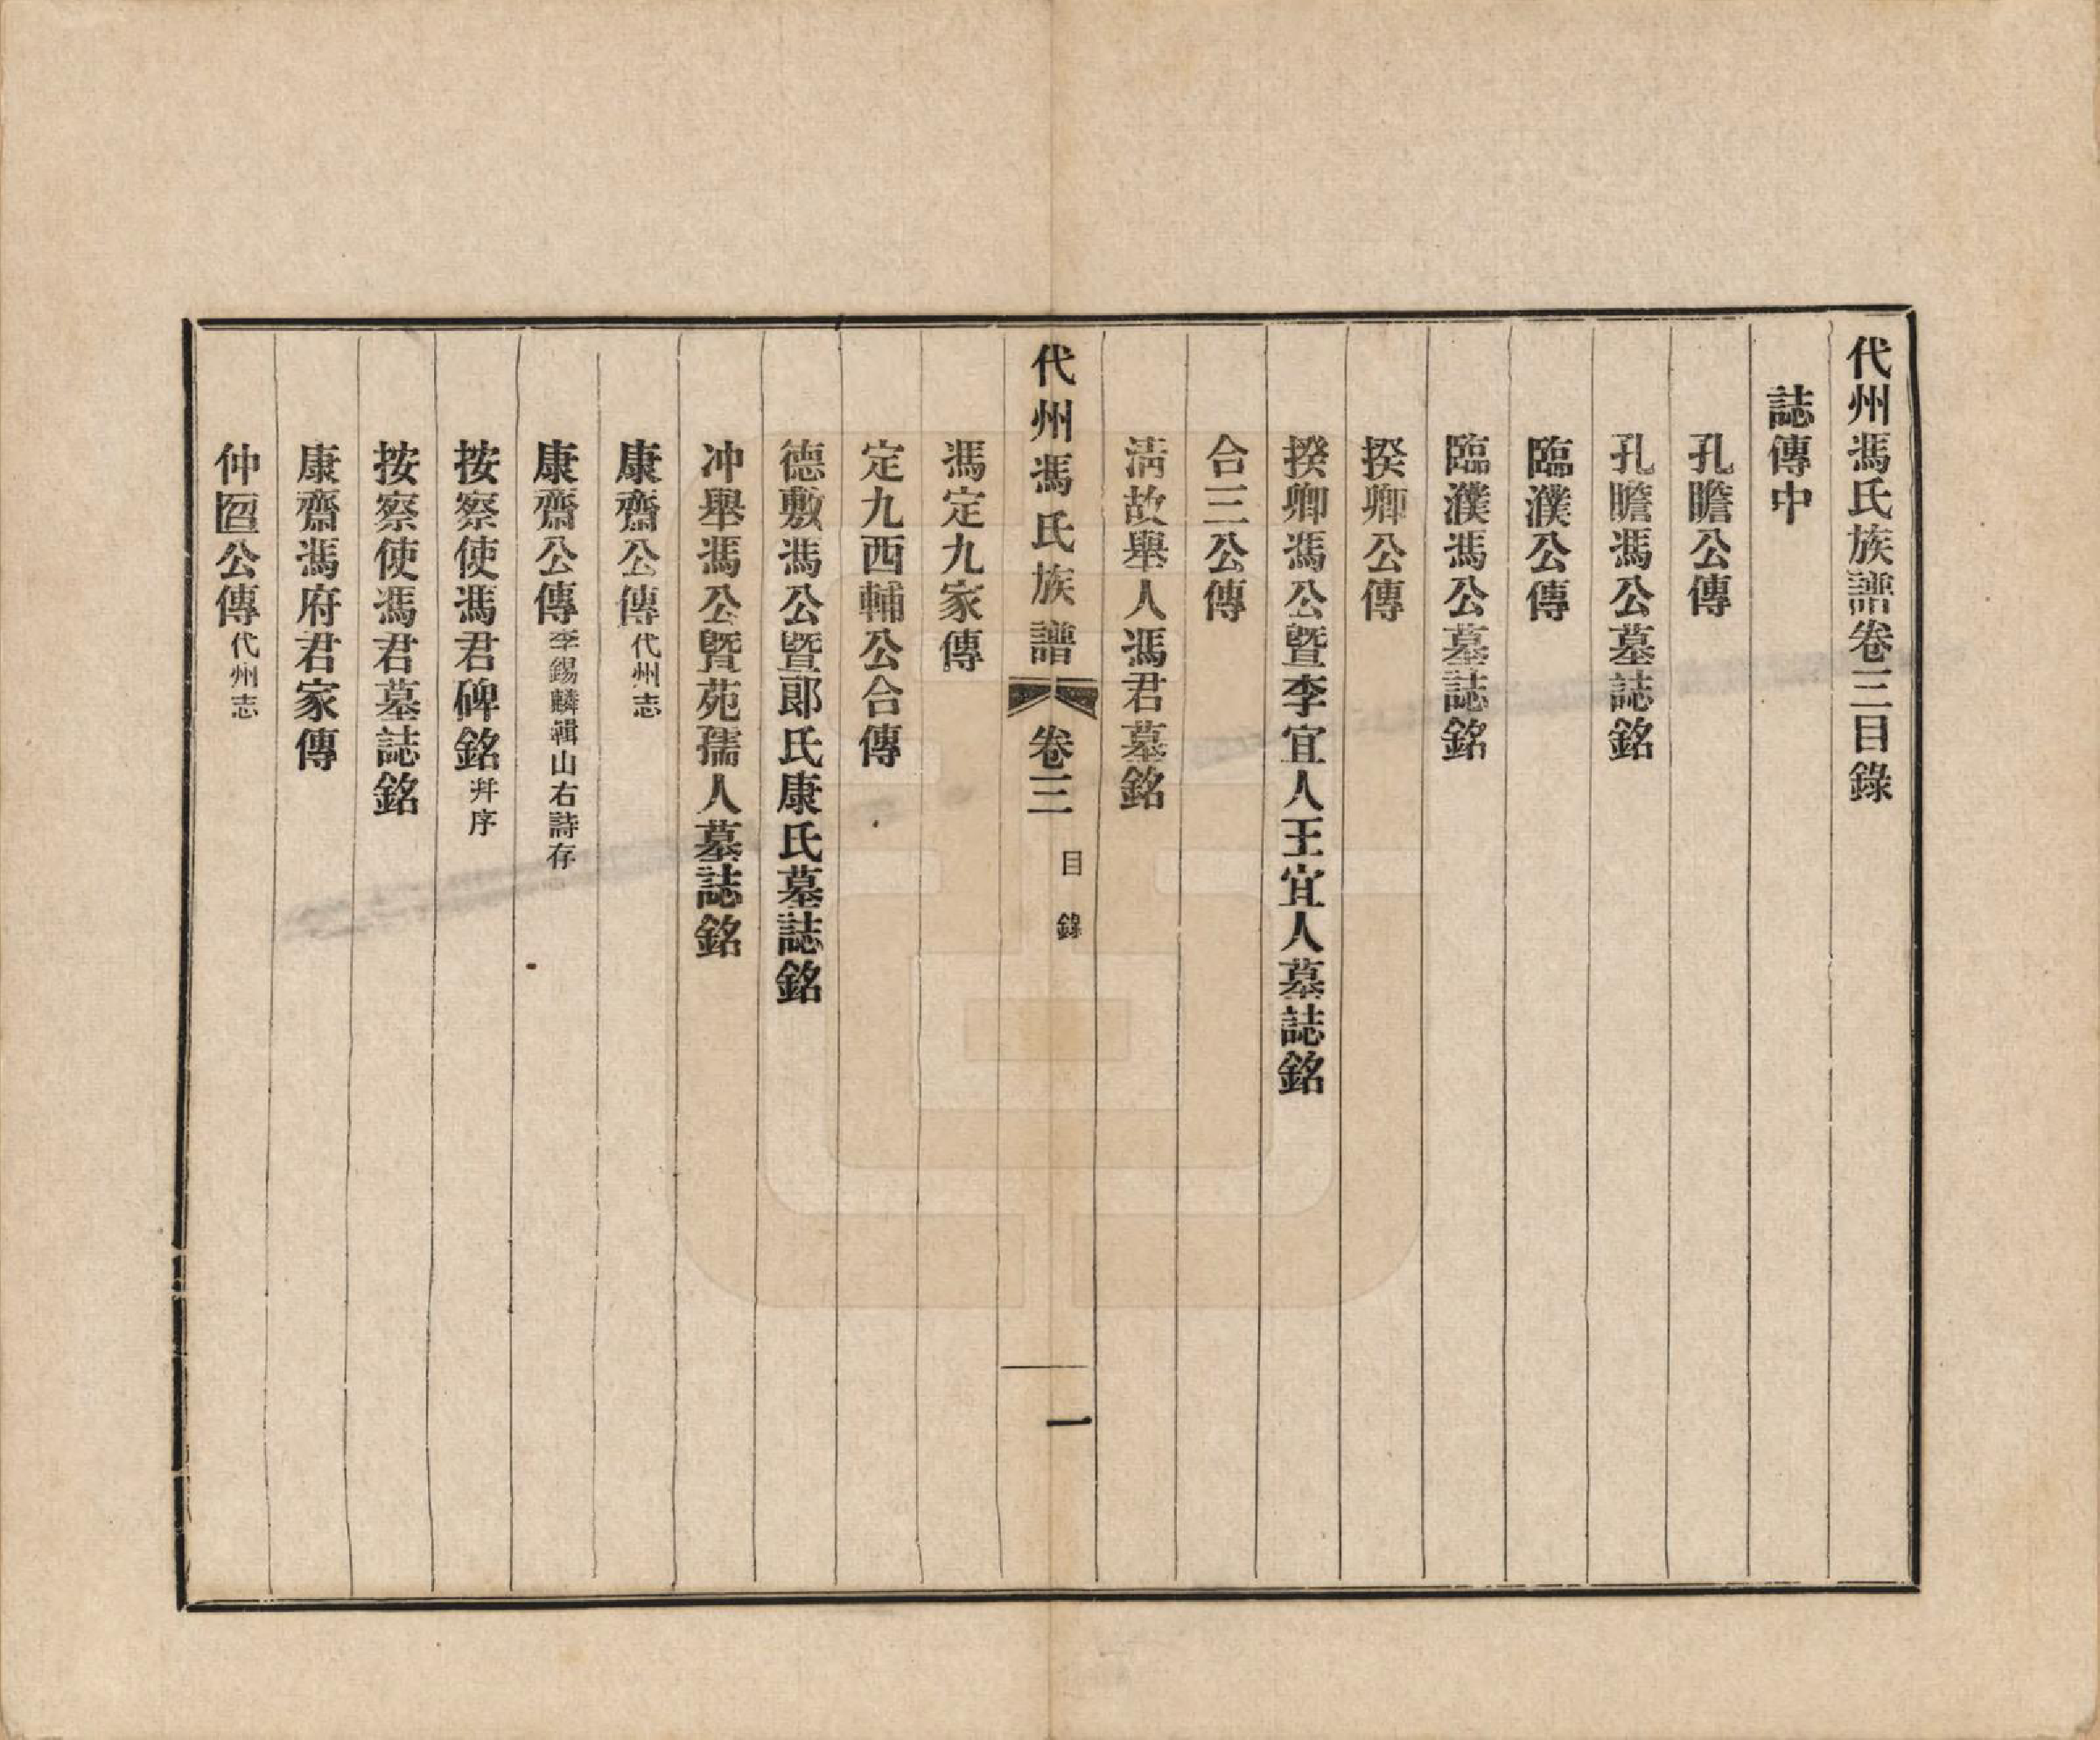 代州馮氏族譜卷三目錄
誌傳中
孔瞻公傳
孔瞻馮公墓誌銘
臨濮公傳
臨濮馮公墓誌銘
揆卿公傳
揆卿馮公暨李宜人王宜人墓誌銘
合三公傳
清故舉人馮君墓銘
代州馮氏族譜 卷三 目錄 一
馮定九家傳
定九西輔公合傳
德敷馮公暨郎氏康氏墓誌銘
冲舉馮公暨苑孺人墓誌銘
康齋公傳代州志
康齋公傳李錫麟輯山右詩存
按察使馮君碑銘幷序
按察使馮君墓誌銘
康齋馮府君家傳
仲公傳代州志